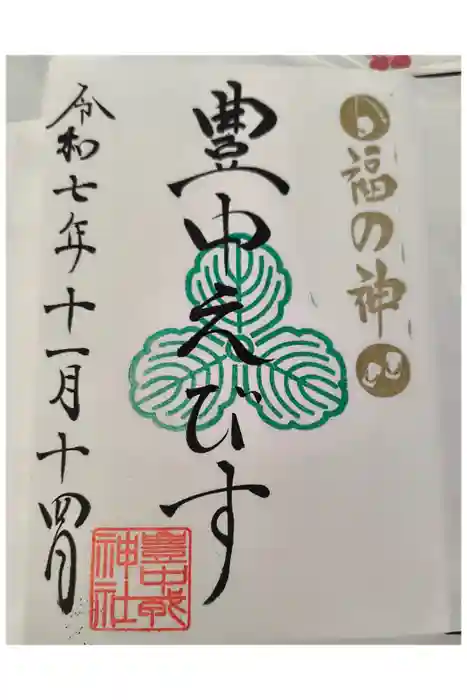 福の神
豊中えびす
令和七年十一月十四日
豊中戎
神社